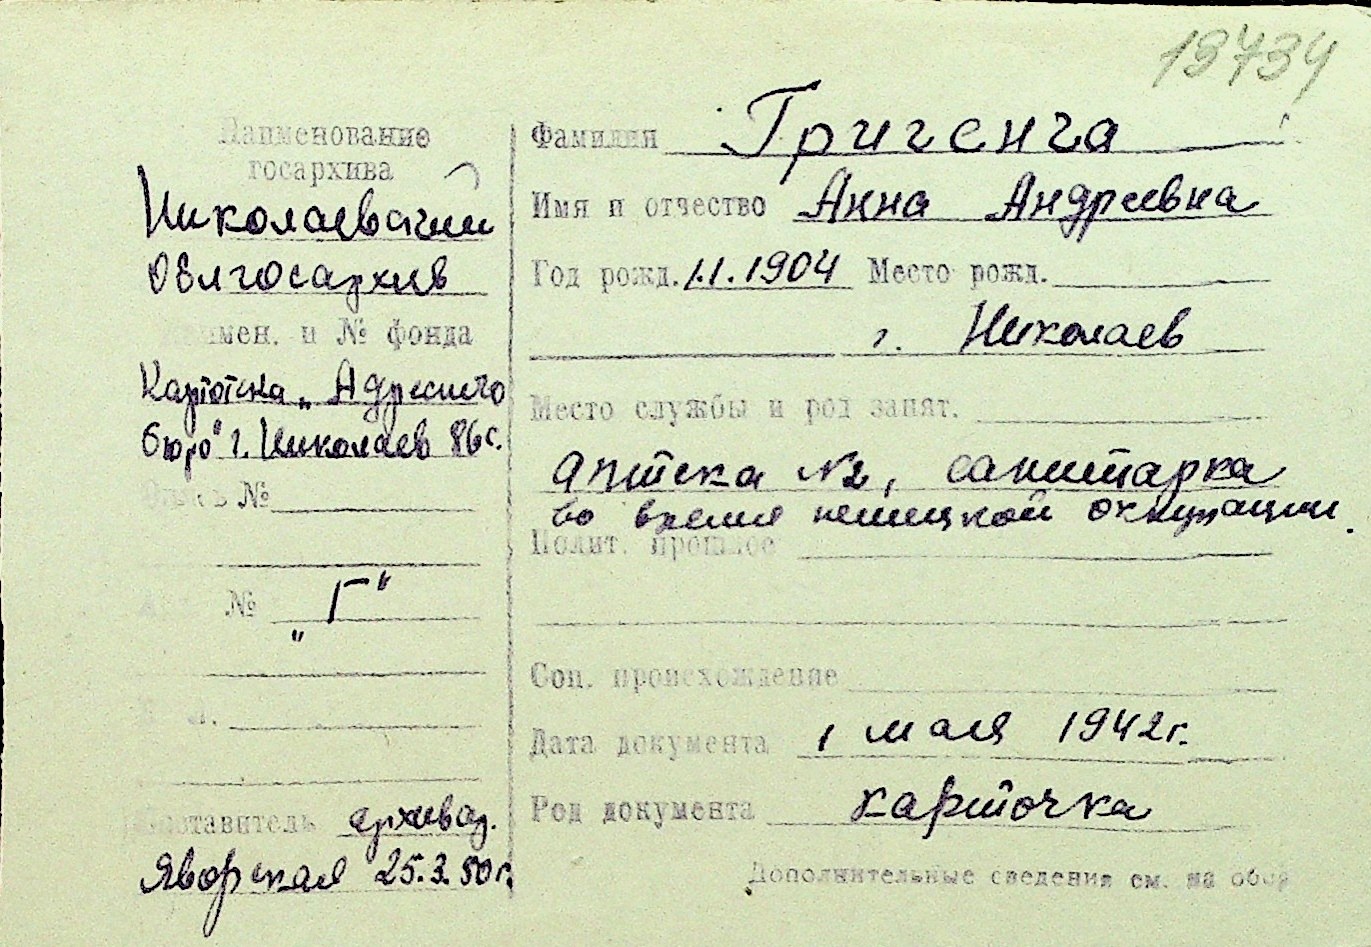 13734
Наименование
госархива
Николаевский
Облгосархив
Наимен. и № фонда
Картотека „Адресного
бюро" г. Николаев 86с.
Опись №
№ „Г"
Составитель архивар.
Яворская 25.3.50г.
Фамилия Григенча
Имя и отчество Анна Андреевна
Год рожд. 1.1.1904 Место рожд.
г. Николаев
Место службы и род занят.
аптека N2, санитарка
во время немецкой оккупации.
Полит. прошлое
Соц. происхождение
Дата документа 1 мая 1942г.
Род документа карточка
Дополнительные сведения см. на обор